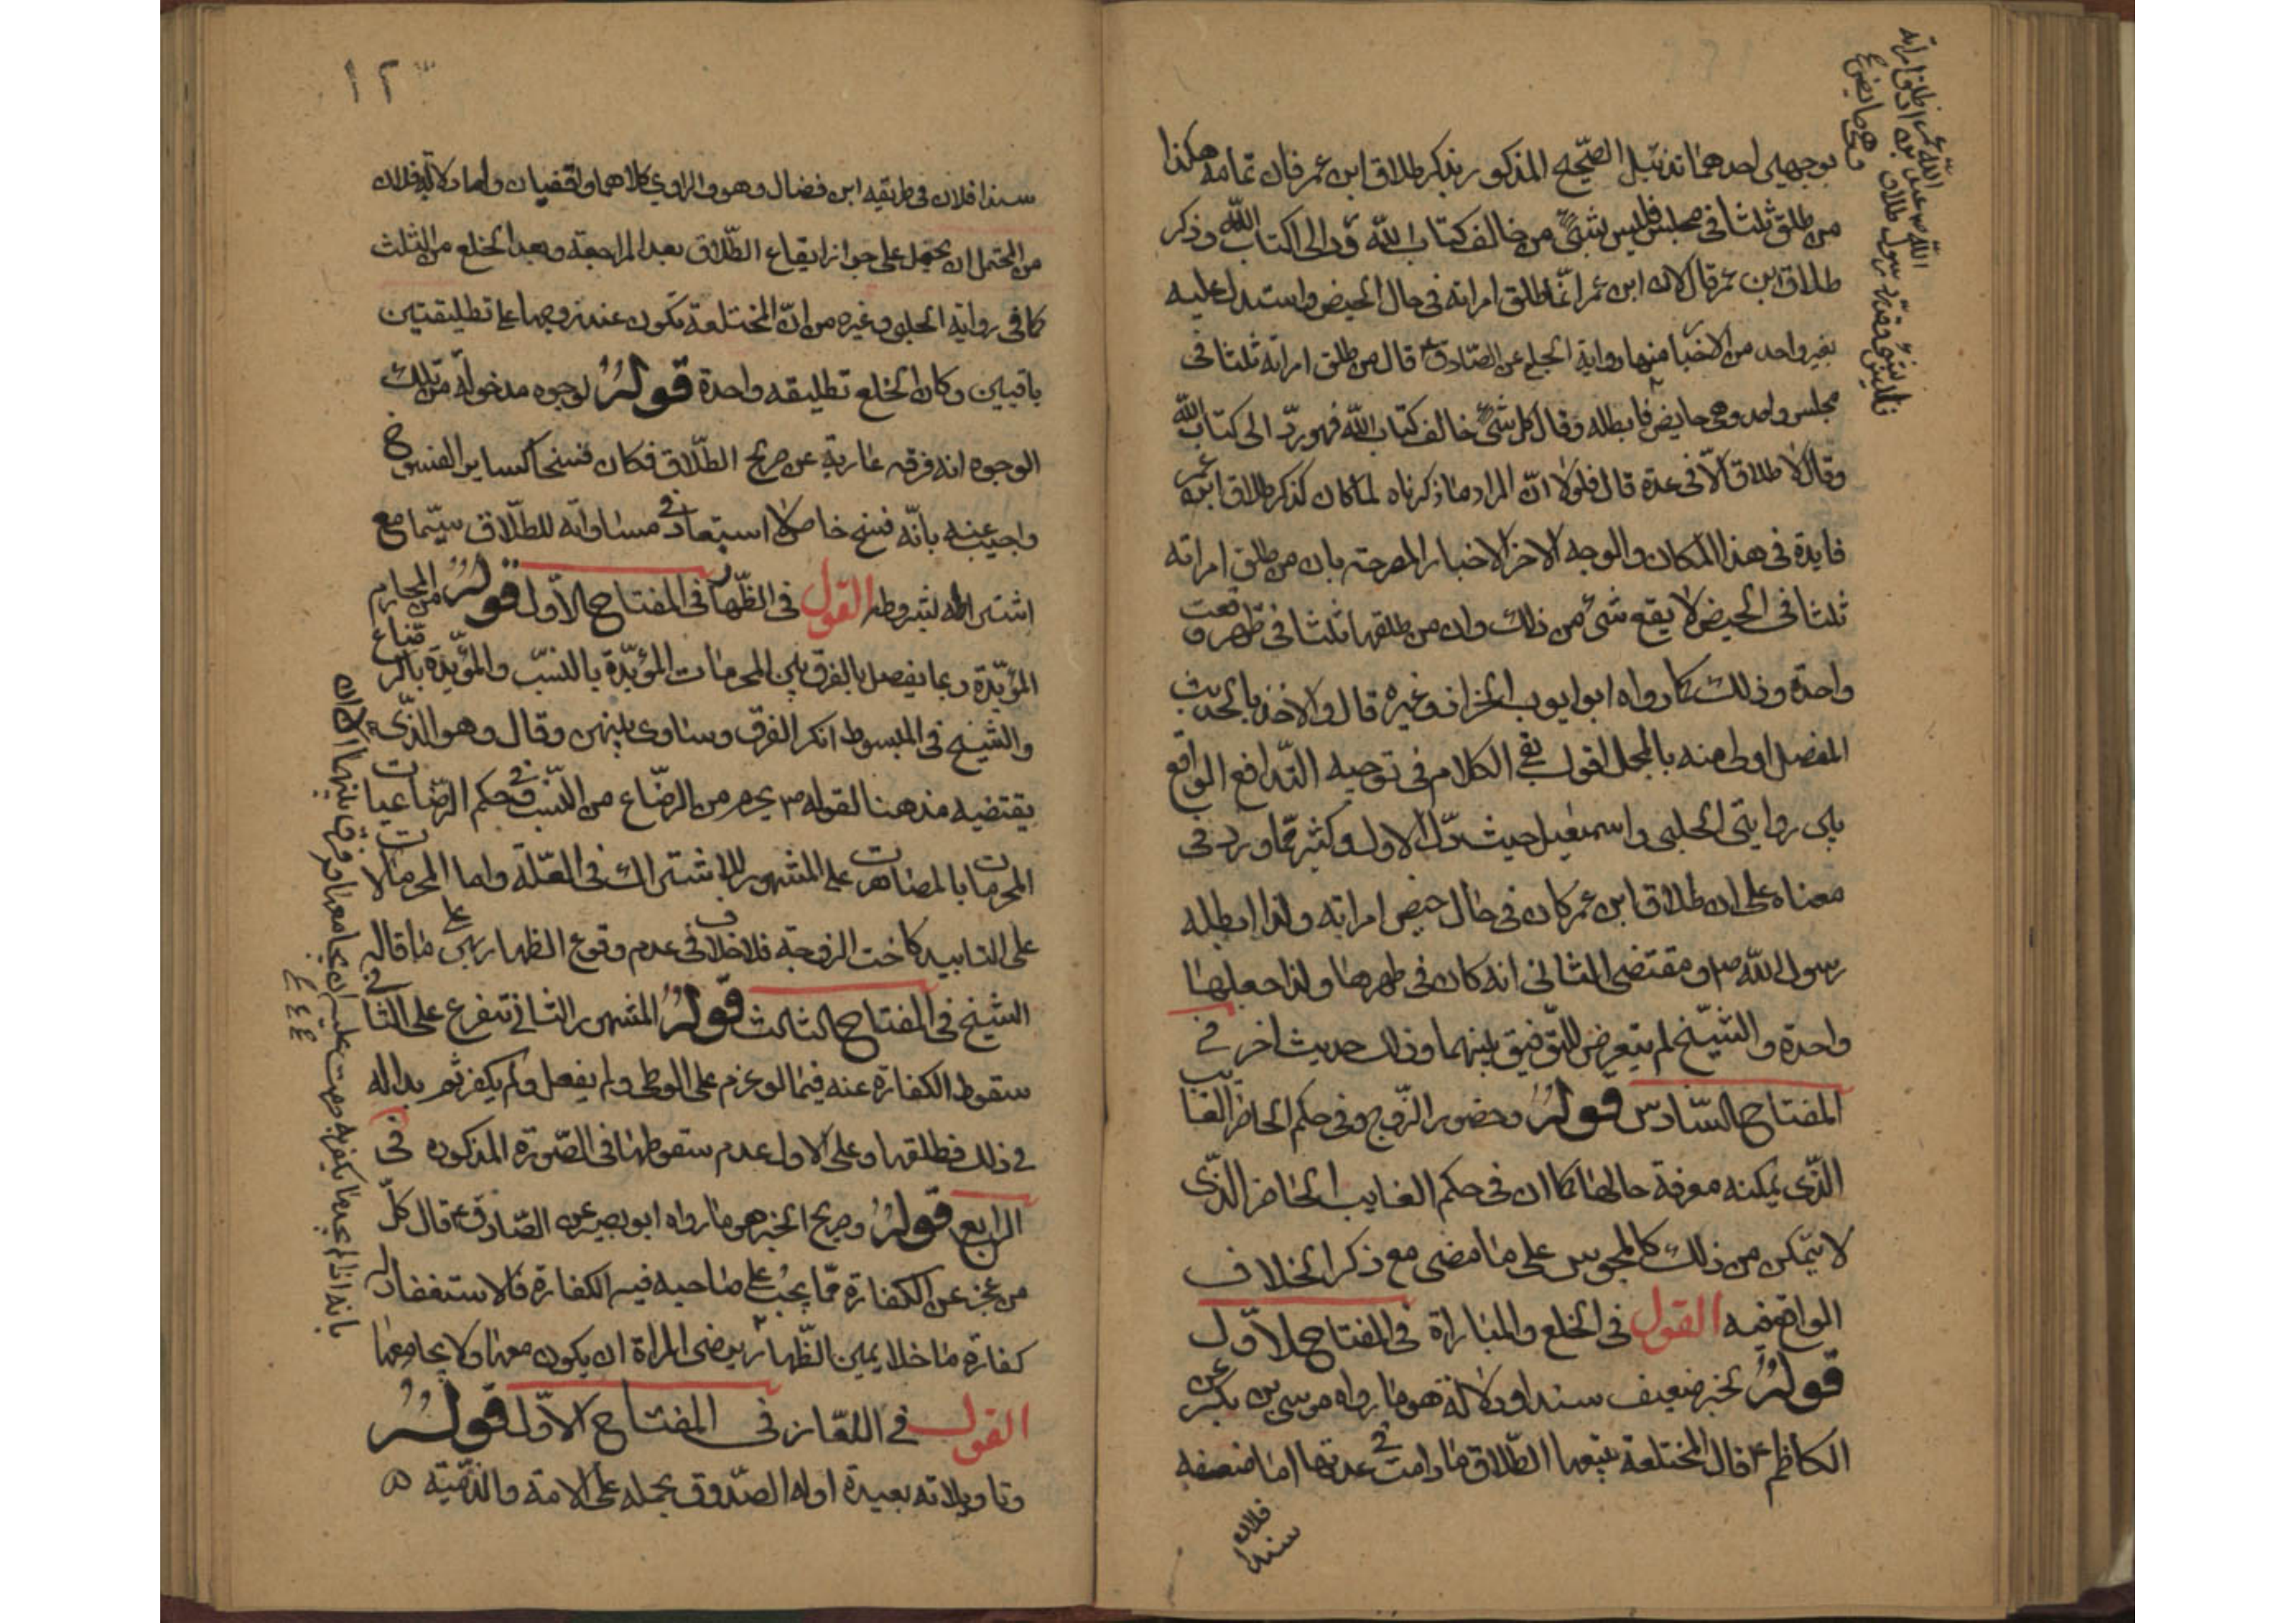 بوجهين احدهما تذييل الصحيح المذكور بذكر طلاق ابن عمر فان تمامه هكذا
من طلق ثلثا في مجلس فليس بشئ من خالف كتاب الله رد الى كتاب الله وذكر
طلاق ابن عمر قال لان ابن عمر انما طلق امراته في حال الحيض واستدل عليه
بغير واحد من الاخبار منها رواية الحلبي عن الصادق ع قال من طلق امراته ثلثا في
مجلس واحد وهى حايض فابطله وقال كل شئ خالف كتاب الله فهو رد الى كتاب الله
وقال لا طلاق الا في عدة قال فلولا ان المراد ما ذكرناه لما كان لذكر طلاق ابن عمر
فايدة في هذا المكان والوجه الاخر الاخبار المصرحة بان من طلق امراته
ثلثا في الحيض لا يقع شئ من ذلك وان من طلقها ثلثا في طهر وقعت
واحدة وذلك كما رواه ابو ايوب الخزاز وغيره قال والاخذ بالحديث
المفصل اولى منه بالمجمل اقول بقى الكلام في توجيه التدافع الواقع
بين روايتى الحلبى واسمعيل حيث دل الاول وكثير مما ورد في
معناه على ان طلاق ابن عمر كان في حال حيض امراته ولذا ابطله
رسول الله ص ومقتضى الثاني انه كان في طهرها ولذا جعلها
واحدة والشيخ لم يتعرض للتوفيق بينهما وذلك حديث اخر في
المفتاح السادس قوله وحضور الزوج وفى حكم الحاضر الغايب
الذى يمكنه معرفة حالها كما ان في حكم الغايب الحاضر الذى
لا يتمكن من ذلك كالمحبوس على ما مضى مع ذكر الخلاف
الواقع فيه القول في الخلع والمباراة في المفتاح الاول
قوله لخبر ضعيف سندا ودلالة هو ما رواه موسى بن بكر عن
الكاظم ع قال المختلعة يتبعها الطلاق ما دامت في عدتها اما ضعفه
سندا فلان
الله
فليس بشئ
سندا فلان في طريقه ابن فضال وهو والراوى كلاهما واقفيان واما دلالة فلان
من المحتمل ان يحمل على جواز ايقاع الطلاق بعد المراجعة وبعد الخلع من الثلث
كما في رواية الحلبى وغيره من ان المختلعة تكون عند زوجها على تطليقتين
باقيين وكان الخلع تطليقه واحدة قوله لوجوه مدخولة من تلك
الوجوه انه فرقه عارية عن صريح الطلاق فكان فسخا كساير الفسوخ
واجيب عنه بانه فسخ خاص لا استبعاد في مساواته للطلاق سيما مع
اشتراطه بشروطه القول في الظهار في المفتاح الاول قوله من المحارم
المؤبدة ربما يفصل بالفرق بين المحرمات المؤبدة بالنسب والمؤبدة بالرضاع
والشيخ في المبسوط انكر الفرق وساوى بينهن وقال وهو الذى
يقتضيه مذهبنا لقوله ص يحرم من الرضاع من النسب وفي حكم الرضاعيات
المحرمات بالمصاهرات على المشهور للاشتراك في العلة واما المحرمات لا
على التابيد كاخت الزوجة فلا خلاف في عدم وقوع الظهار بهن على ما قاله
الشيخ في المفتاح الثالث قوله المشهور الثاني تتفرع على الثاني
سقوط الكفارة عنه فيما لو عزم على الوطى ولم يفعل ولم يكفر ثم بدا له
في ذلك فطلقها وعلى الاول عدم سقوطها في الصورة المذكوره في
الرابع قوله وصريح الخبر هو ما رواه ابو بصير عن الصادق ع قال كل
من عجز عن الكفارة مما يجب على صاحبه فيه الكفارة فالاستغفار له
كفارة ما خلا يمين الظهار يرضى المراة ان يكون معها ولا يجامعها
القول في اللعان في المفتاح الاول قوله
وتاويلاته بعيدة اوله الصدوق بحمله على الامة والذمية